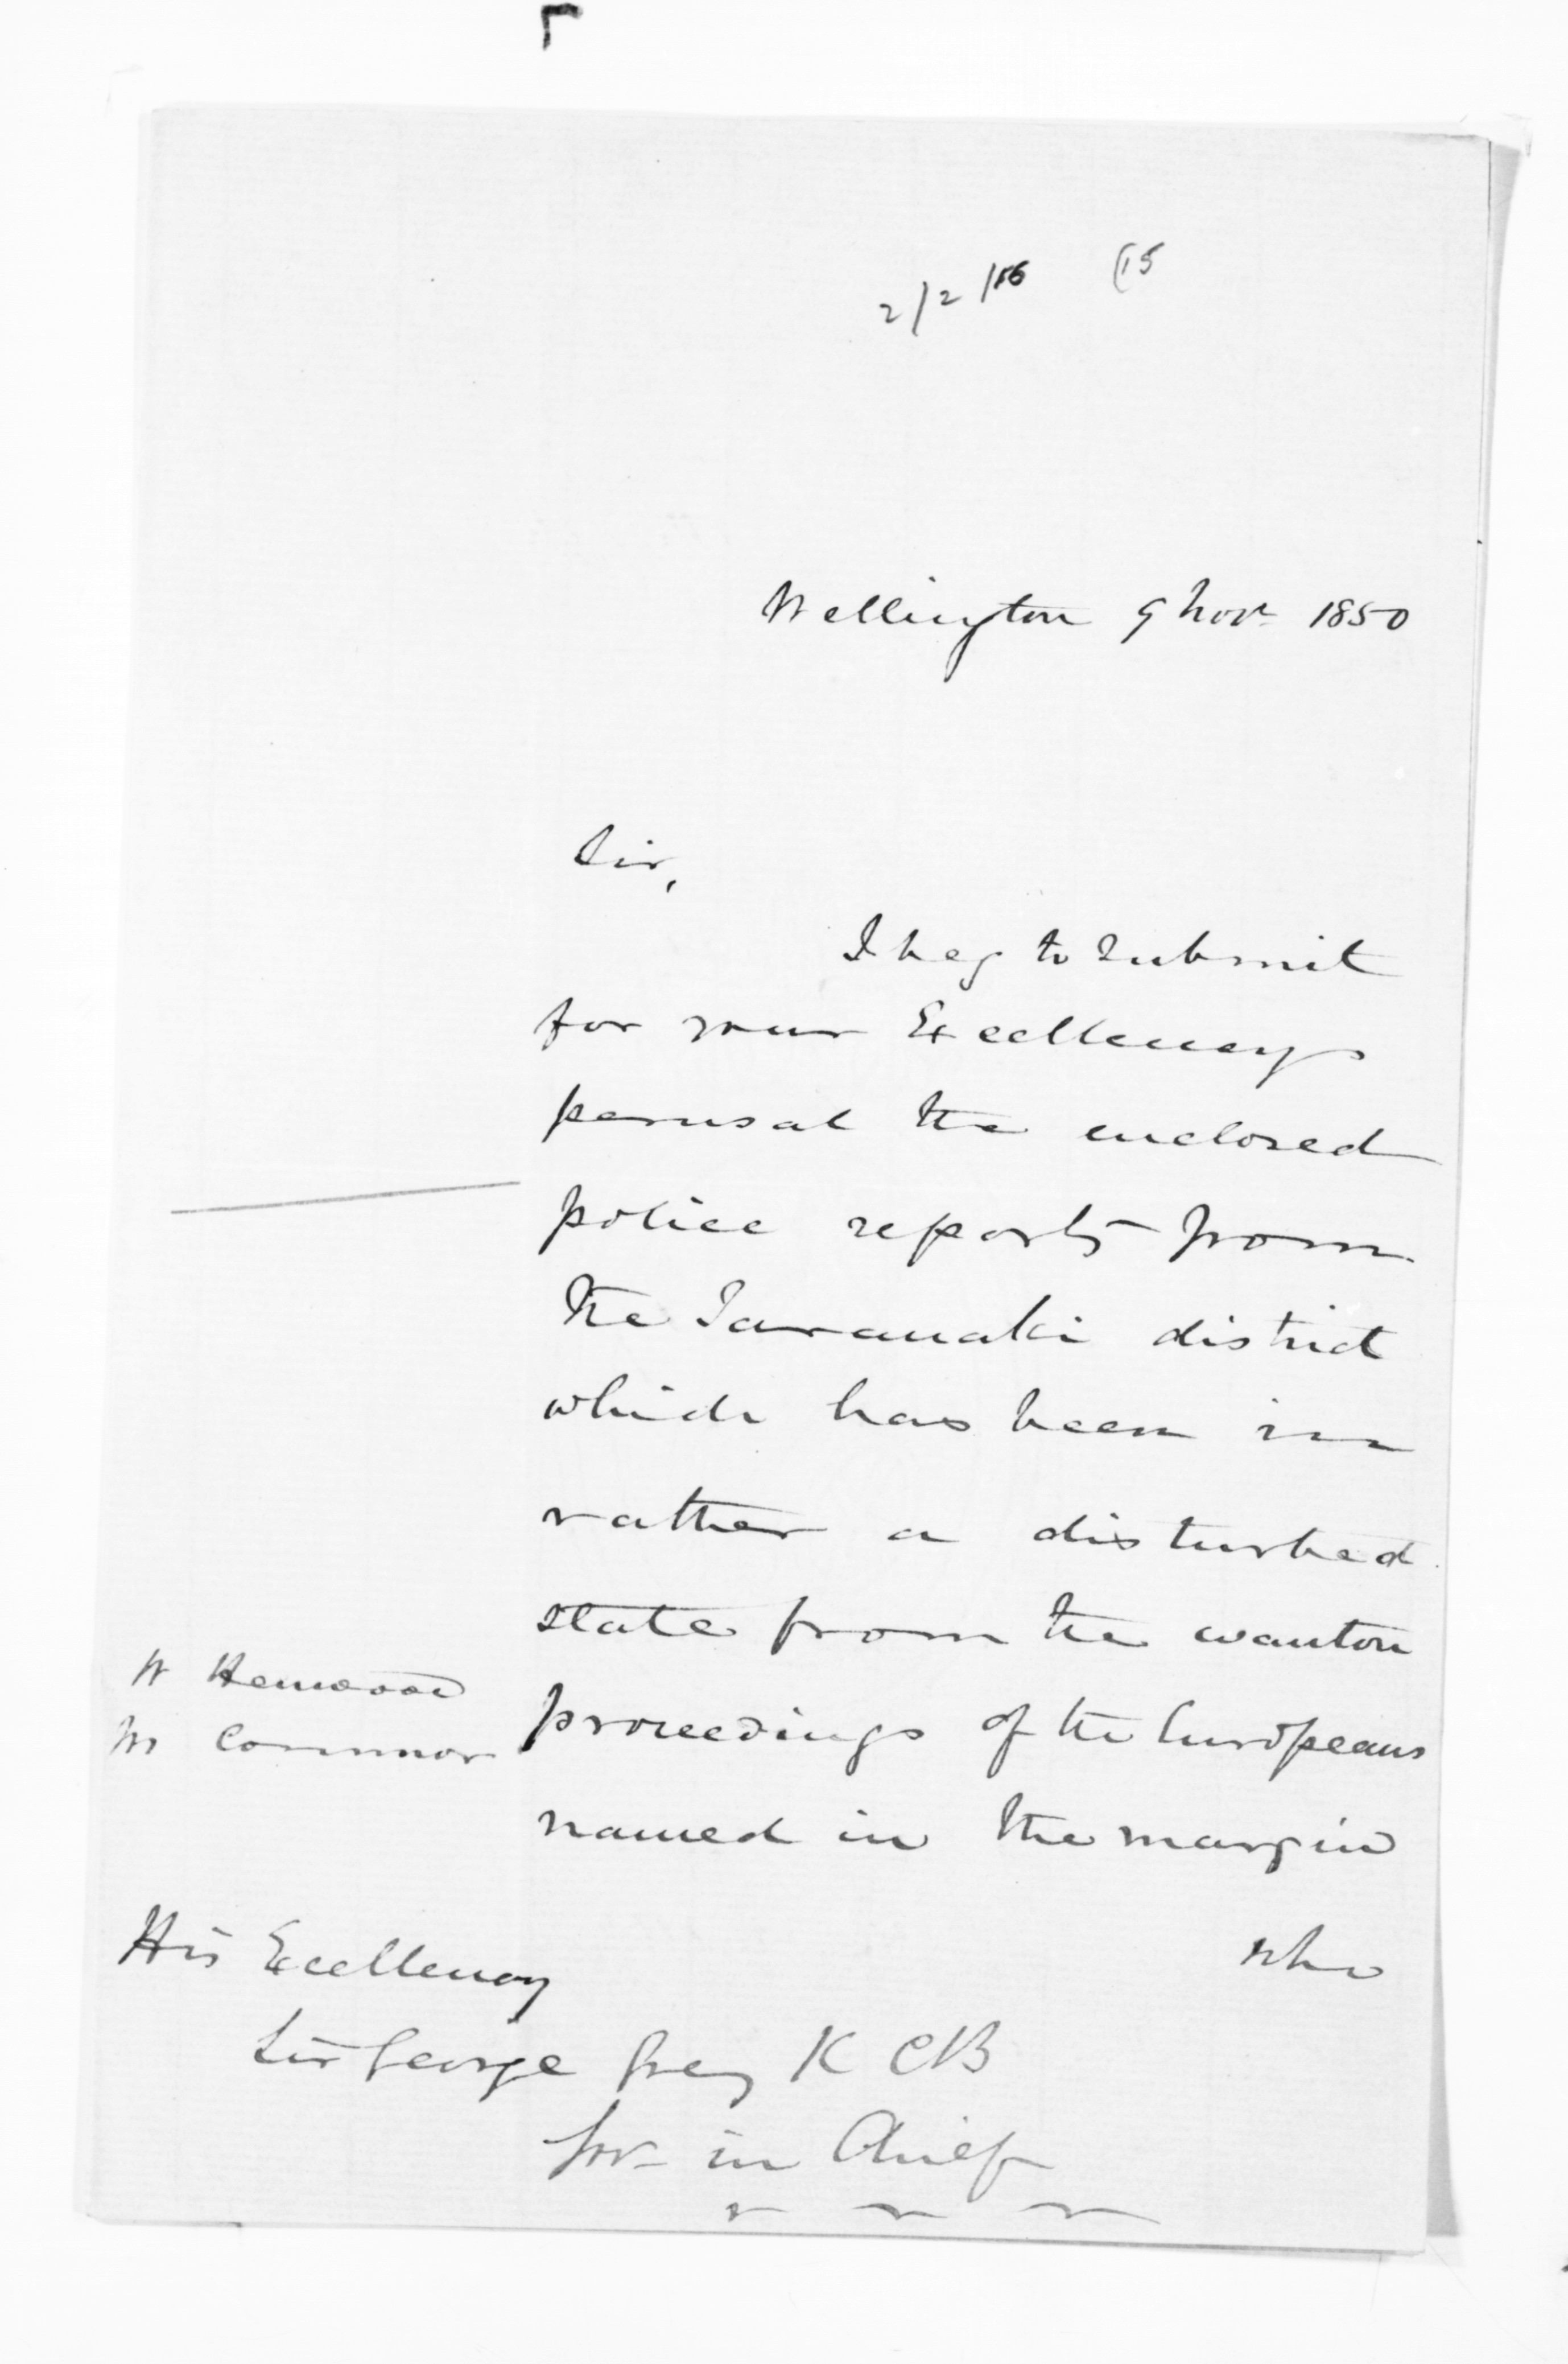 2/2/156 (15
Wellington 9 Novr 1850
Sir,
I beg to submit
for your Excellencys
perusal the enclosed
police reports from
the Taranaki district
which has been in
rather a disturbed
state from the wanton
W Henwood
M Connor
proceedings of the Europeans
named in the margin
who
His Excellency
Sir George Grey K C B
Gov in Chief